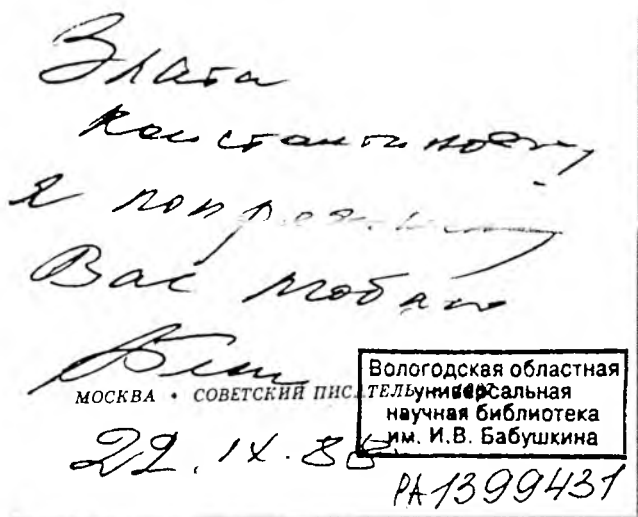 Злата
Константиновна,
я по прежнему
Вас люблю
МОСКВА • СОВЕТСКИЙ ПИСАТЕЛЬ
Вологодская областная
универсальная
научная библиотека
им. И.В. Бабушкина
22.IX.88
РА1399431